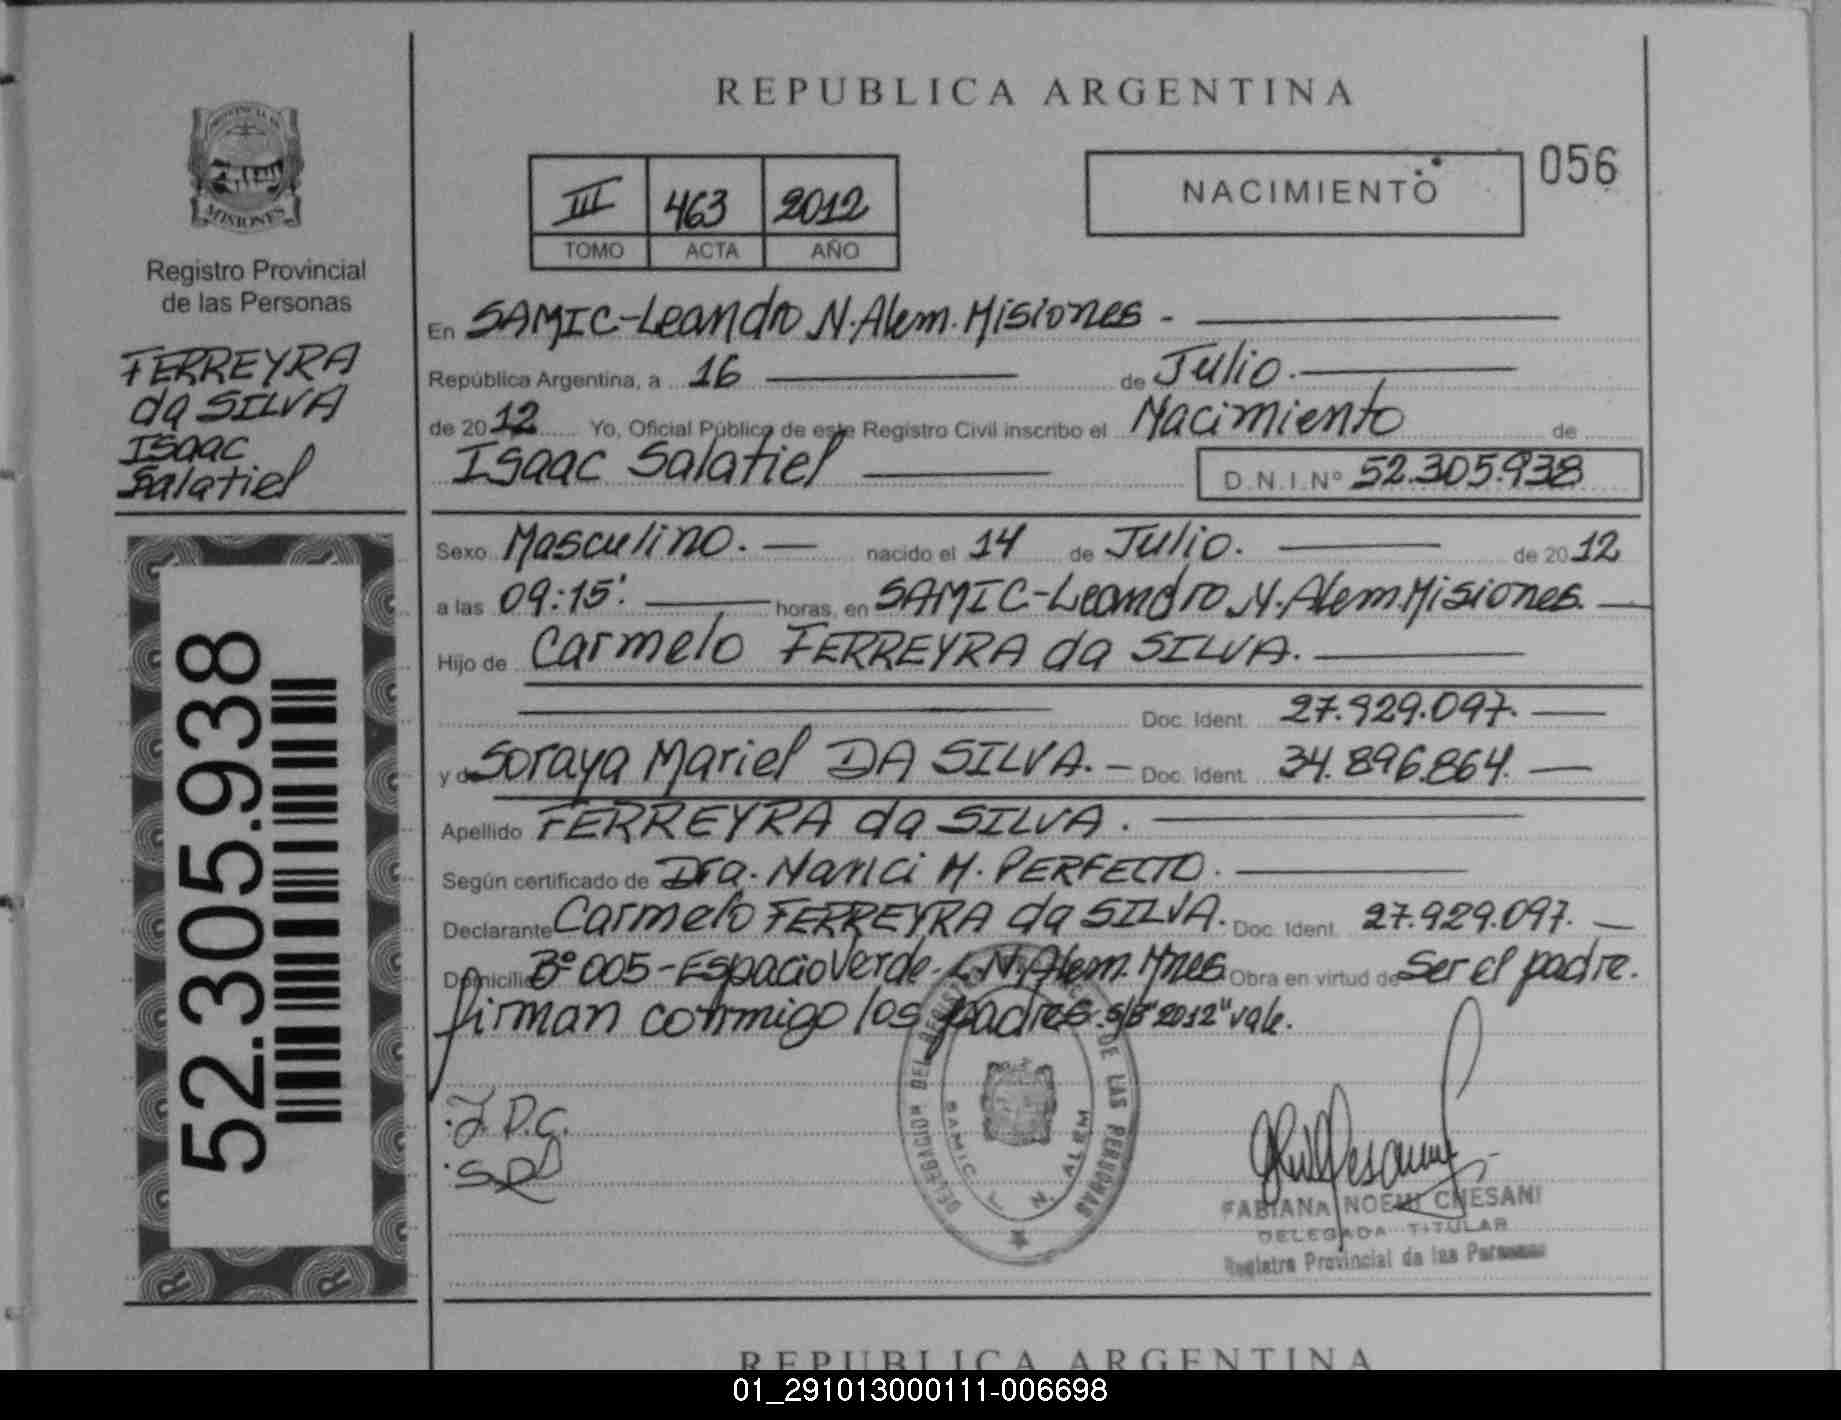 REPUBLICA ARGENTINA
PROVINCIA DE
MISIONES
Registro Provincial
de las Personas
FERREYRA
da SILVA
Isaac
Salatiel
52.305.938
III 463 2012
TOMO ACTA AÑO
NACIMIENTO
056
En SAMIC-Leandro N. Alem. Misiones -
República Argentina, a 16 de Julio.
de 2012 Yo, Oficial Público de este Registro Civil inscribo el Nacimiento de
Isaac Salatiel D.N.I.Nº 52.305.938
Sexo Masculino. nacido el 14 de Julio. de 2012
a las 09:15' horas, en SAMIC-Leandro N. Alem. Misiones.
Hijo de Carmelo FERREYRA da SILVA.
Doc. Ident. 27.929.097.
y de Soraya Mariel DA SILVA. - Doc. Ident. 34.896.864.
Apellido FERREYRA da SILVA.
Según certificado de Dra. Nanci M. PERFECTO.
Declarante Carmelo FERREYRA da SILVA. Doc. Ident. 27.929.097.
Domicilio Bº 005-Espacio Verde-L.N. Alem. Mnes. Obra en virtud de Ser el padre.
firman conmigo los padres. S/B "2012" vale.
J.D.G.
SRD
DELEGACION DEL REGISTRO DE LAS PERSONAS
SAMIC L. N. ALEM
FABIANA NOEMI CHESANI
DELEGADA TITULAR
Registro Provincial de las Personas
REPUBLICA ARGENTINA
01_291013000111-006698